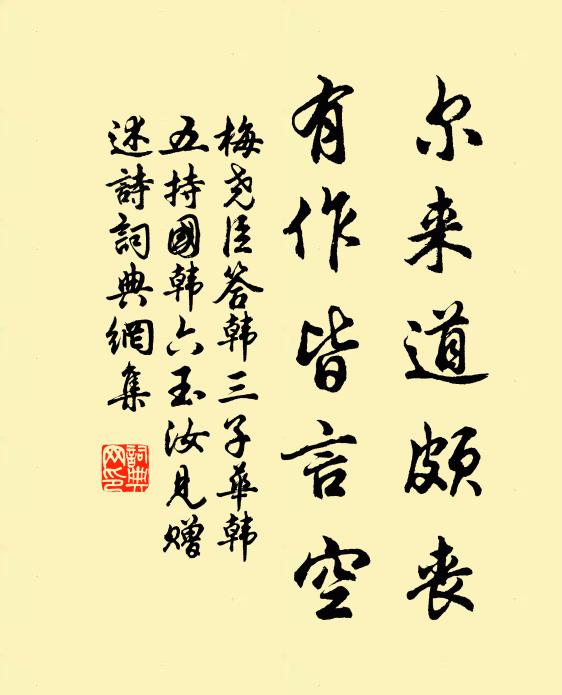 尔来道颇丧
有作皆言空
梅尧臣答韩三子华韩
五持國韩六玉汝见赠
述詩詞典網集
詞典網印